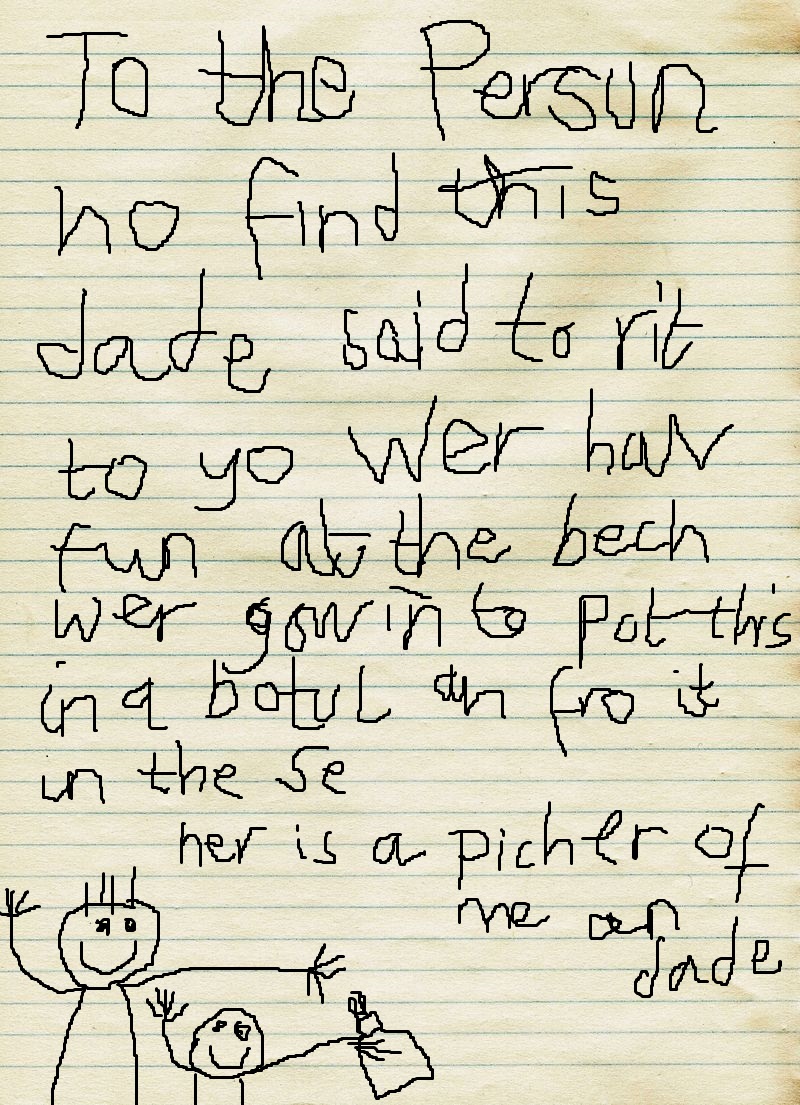 To the Persun
ho find this
dade said to rit
to yo wer hav
fun at the bech
wer gowin to pot this
in a botul an fro it
in the se
her is a picher of
me an
dade